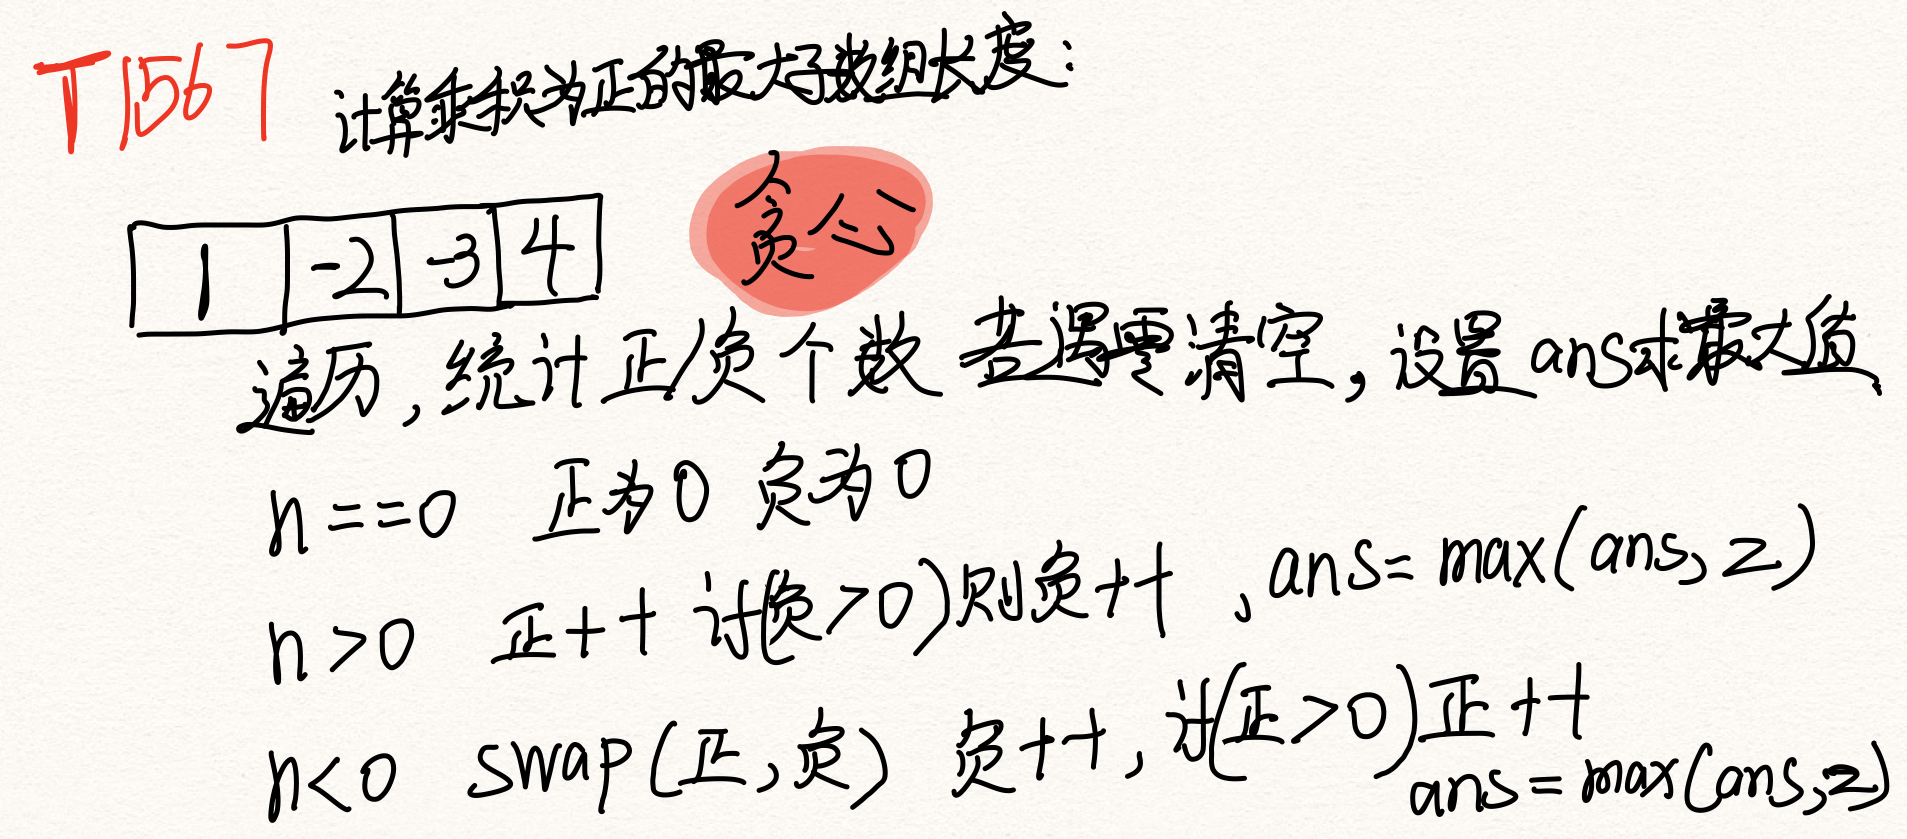 T1567 计算乘积为正的最大子数组长度:
1 -2 -3 4
贪心
遍历,统计正/负个数 若遇零清空,设置ans求最大值
n==0 正为0 负为0
n>0 正++ 计(负>0)则负++ , ans=max(ans, z)
n<0 swap(正,负) 负++, 计(正>0)正++
ans=max(ans,z)